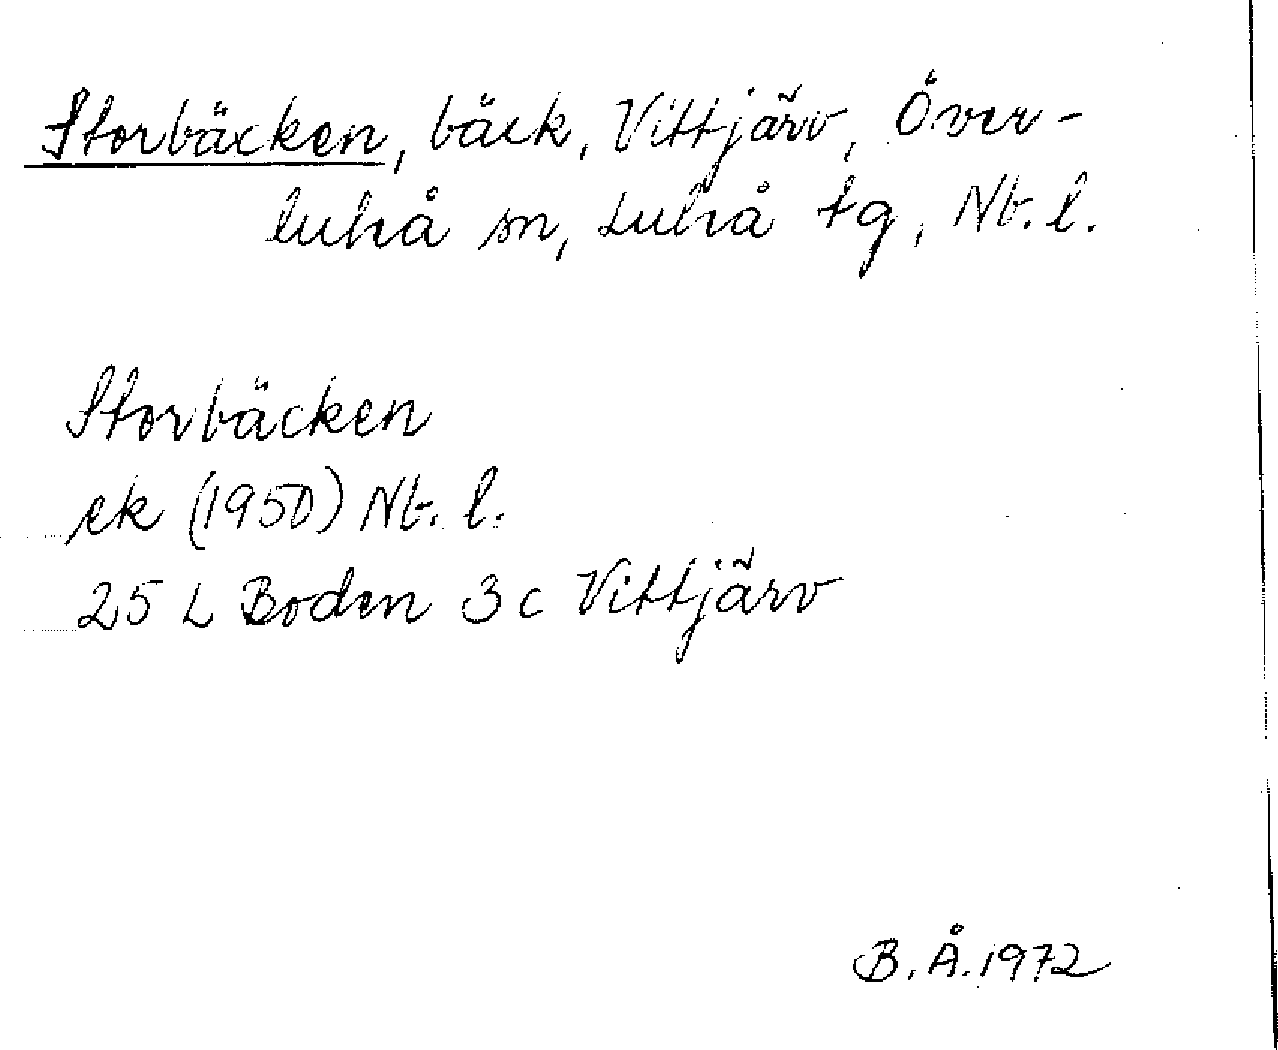 Storbäcken, bäck, Vittjärv, Över-
luleå sn, Luleå tg, Nb. l.
Storbäcken
ek (1950) Nb. l.
25 L Boden 3c Vittjärv
B. Å. 1972